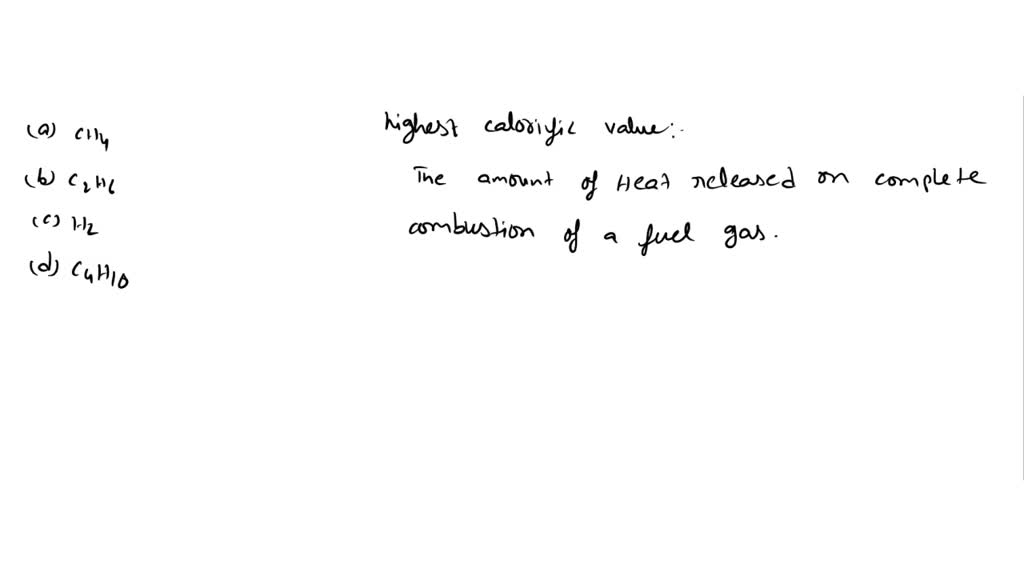 (a) CH4
(b) C2H6
(c) H2
(d) C4H10
highest calorific value:-
The amount of Heat released on complete
combustion of a fuel gas.